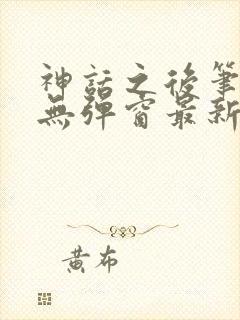 神話之後筆
無彈窗最新
黃布